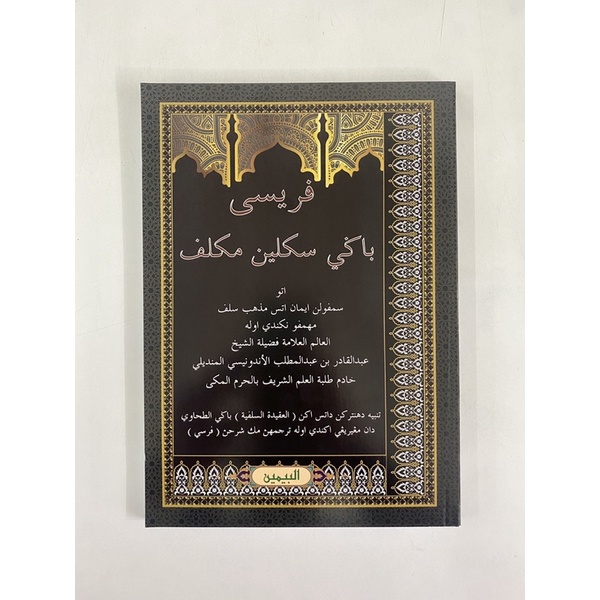 ڤريسى
باڬي سكلين مكلف
اتو
سمڤورن ايمان اتس مذهب سلف
مهمڤونكندي اوله
العالم العلامة فضيلة الشيخ
عبدالقادر بن عبدالمطلب الأندونيسي المنديلي
خادم طلبة العلم الشريف بالحرم المكى
تنبيه دهنتركن داتس اكن ( العقيدة السلفية ) باڬي الطحاوي
دان مڠيريڠي اكندي اوله ترجمهن مك شرحن ( ڤرسي )
البيمين